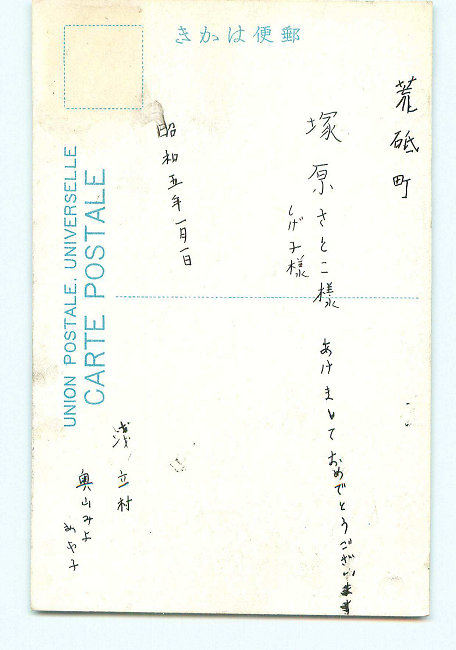 きかは便郵
荒砥町
塚原さとこ様
しげ子様
あけましておめでとうございます
昭和五年一月一日
浅立村
奥山みよ
みや子
UNION POSTALE UNIVERSELLE
CARTE POSTALE